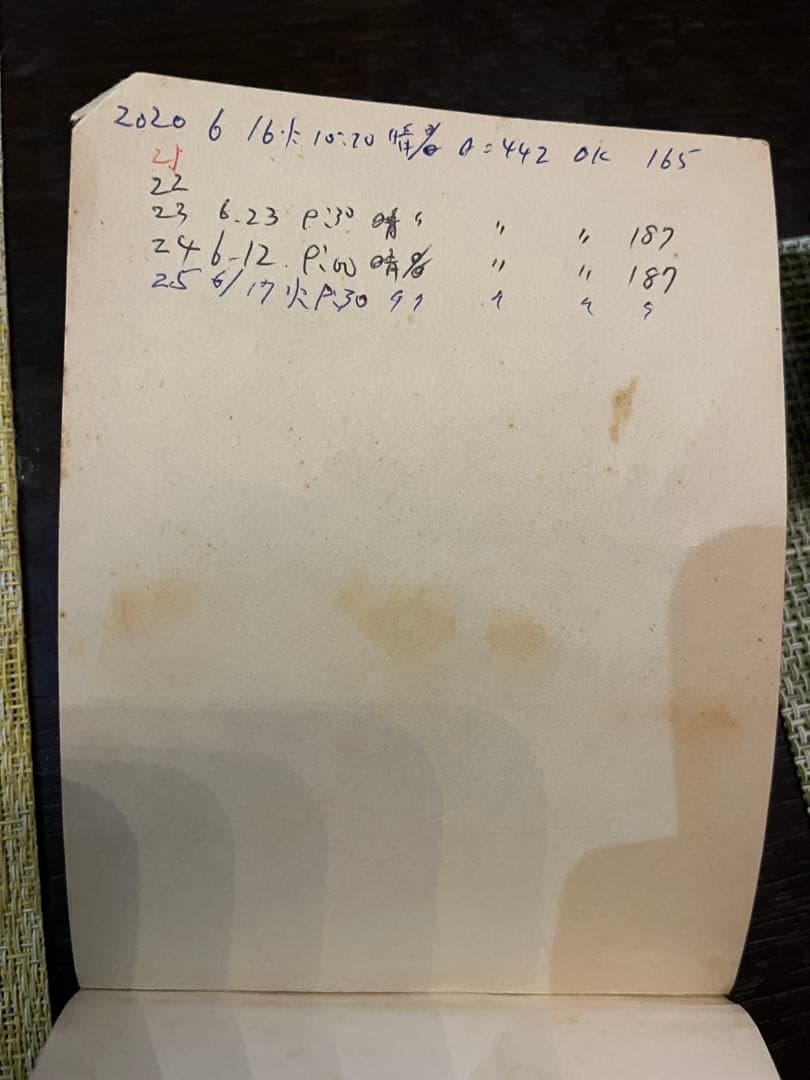 2020 6 16 火 10:20 晴 A=442 OK 165
21
22
23 6.23 P:30 晴 〃 〃 〃 187
24 6-12 P:00 晴 〃 〃 187
25 6/17 火 P:30 〃 〃 〃 〃 〃